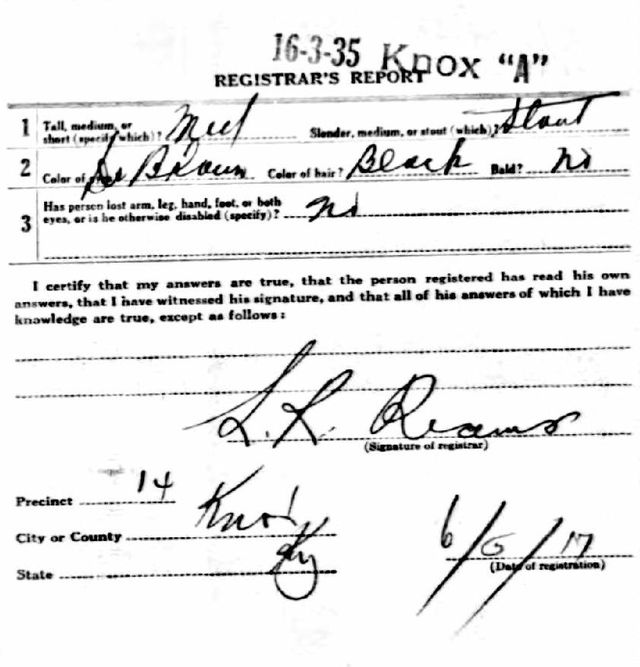 16-3-35 Knox "A"
REGISTRAR'S REPORT
1 Tall, medium, or short (specify which)? Med Slender, medium, or stout (which)? Stout
2 Color of Brown Color of hair? Black Bald? No
3 Has person lost arm, leg, hand, foot, or both eyes, or is he otherwise disabled (specify)? No
I certify that my answers are true, that the person registered has read his own
answers, that I have witnessed his signature, and that all of his answers of which I have
knowledge are true, except as follows:
L. R. Reams
(Signature of registrar)
Precinct 14
City or County Knox
State Ky
6/5/17
(Date of registration)